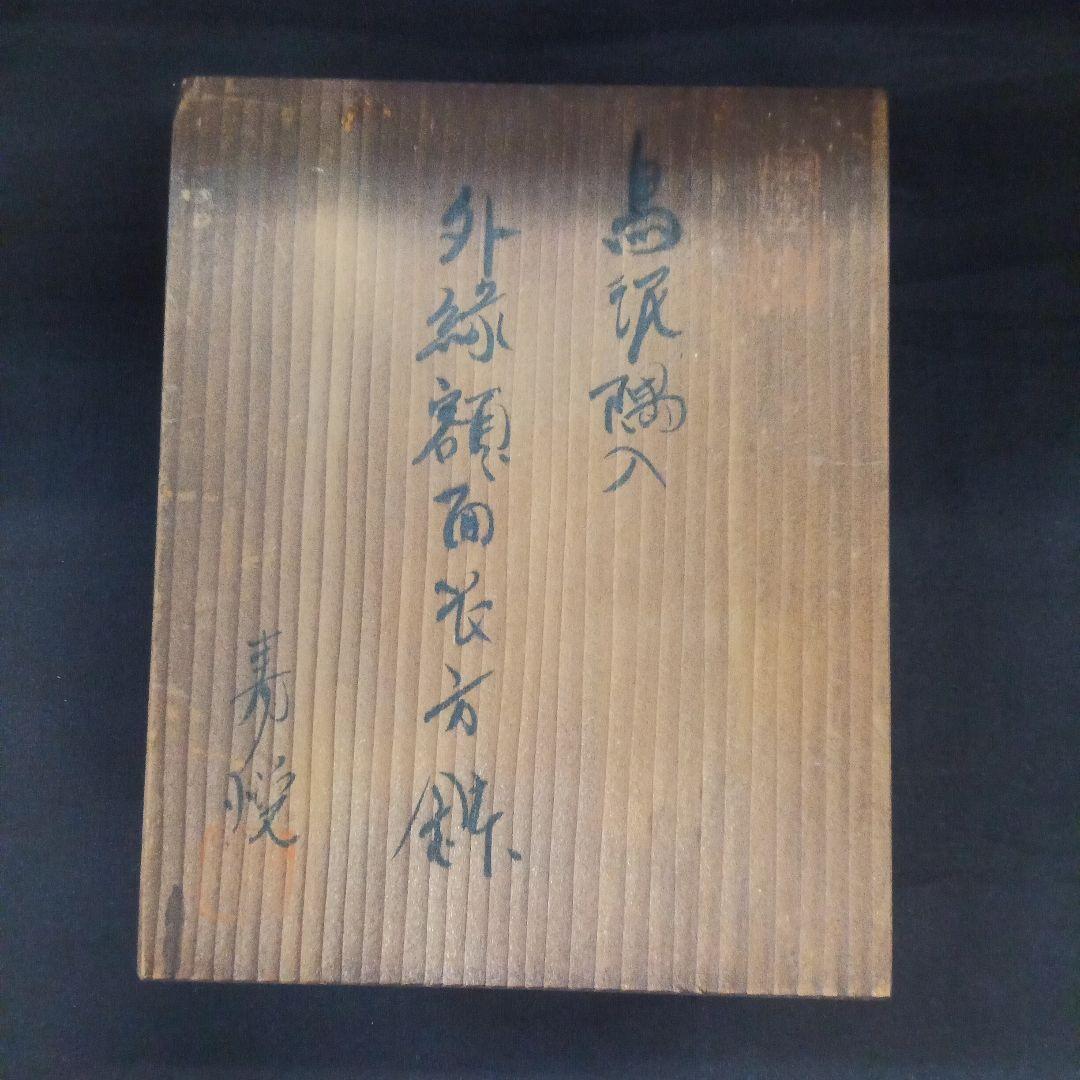 烏泥隅入
外縁額面長方鉢
寿悦